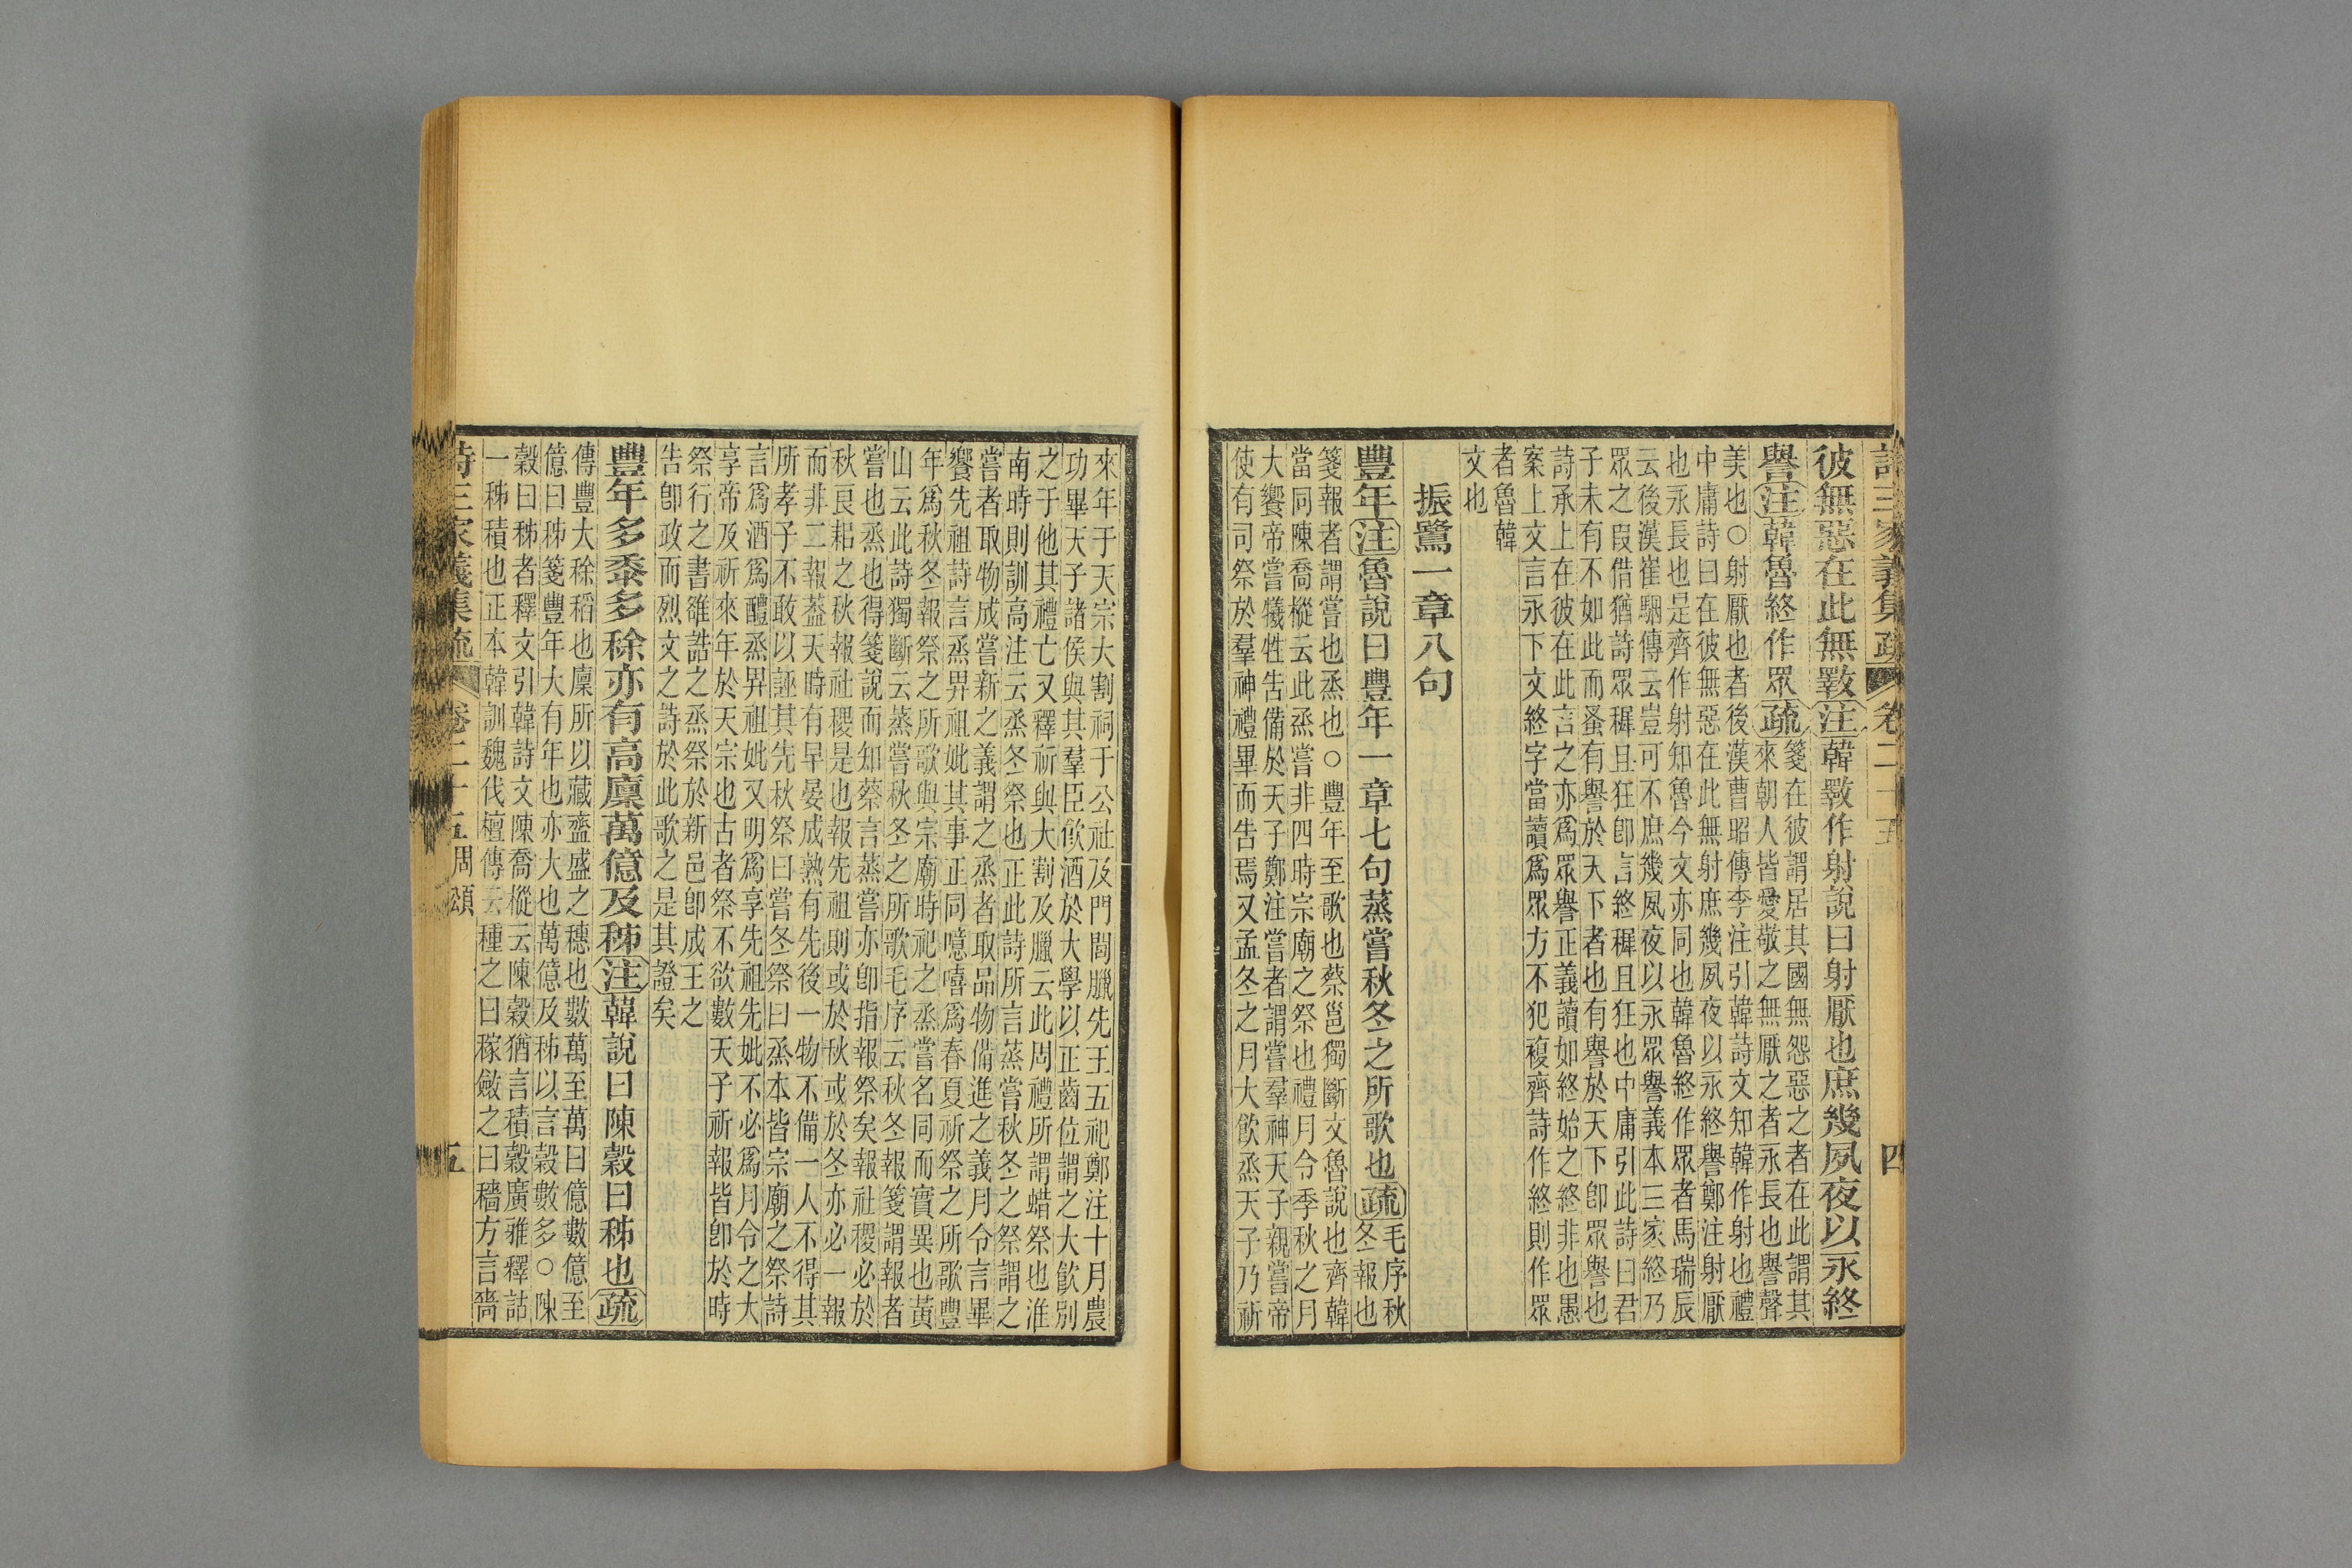 詩三家義集疏　卷二十五　四
彼無惡在此無斁注韓斁作射說曰射厭也庶幾夙夜以永終
譽注韓魯終作眾疏箋在彼謂居其國無怨惡之者在此謂其
來朝人皆愛敬之無厭之者永長也譽聲
美也○射厭也者後漢曹昭傳李注引韓詩文知韓作射也禮
中庸詩曰在彼無惡在此無射庶幾夙夜以永終譽鄭注射厭
也永長也是齊作射知魯今文亦同也韓魯終作眾者馬瑞辰
云後漢崔駰傳云豈可不庶幾夙夜以永眾譽義本三家終乃
眾之叚借猶詩眾穉且狂卽言終穉且狂也中庸引此詩曰君
子未有不如此而蚤有譽於天下者也有譽於天下卽眾譽也
詩承上在彼在此言之亦爲眾譽正義讀如終始之終非也愚
案上文言永下文終字當讀爲眾方不犯複齊詩作終則作眾
者魯韓
文也
振鷺一章八句
豐年注魯說曰豐年一章七句蒸嘗秋冬之所歌也疏毛序秋
冬報也
箋報者謂嘗也烝也○豐年至歌也蔡邕獨斷文魯說也齊韓
當同陳喬樅云此烝嘗非四時宗廟之祭也禮月令季秋之月
大饗帝嘗犧牲告備於天子鄭注嘗者謂嘗羣神天子親嘗帝
使有司祭於羣神禮畢而告焉又孟冬之月大飮烝天子乃祈
來年于天宗大割祠于公社及門閭臘先王五祀鄭注十月農
功畢天子諸侯與其羣臣飮酒於大學以正齒位謂之大飮別
之于他其禮亡又釋祈與大割及臘云此周禮所謂蜡祭也淮
南時則訓高注云烝冬祭也正此詩所言蒸嘗秋冬之祭謂之
嘗者取物成嘗新之義謂之烝者取品物備進之義月令言畢
饗先祖詩言烝畀祖妣其事正同噫嘻爲春夏祈祭之所歌豐
年爲秋冬報祭之所歌與宗廟時祀之烝嘗名同而實異也黃
山云此詩獨斷云蒸嘗秋冬之所歌毛序云秋冬報箋謂報者
嘗也烝也得箋說而知蔡言蒸嘗亦卽指報祭矣報社稷必於
秋良耜之秋報社稷是也報先祖則或於秋或於冬亦必一報
而非二報葢天時有早晏成熟有先後一物不備一人不得其
所孝子不敢以誣其先秋祭曰嘗冬祭曰烝本皆宗廟之祭詩
言爲酒爲醴烝畀祖妣又明爲享先祖先妣不必爲月令之大
享帝及祈來年於天宗也古者祭不欲數天子祈報皆卽於時
祭行之書雒誥之烝祭於新邑卽成王之
告卽政而烈文之詩於此歌之是其證矣
豐年多黍多稌亦有高廩萬億及秭注韓說曰陳穀曰秭也疏
傳豐大稌稻也廩所以藏齍盛之穗也數萬至萬曰億數億至
億曰秭箋豐年大有年也亦大也萬億及秭以言穀數多○陳
穀曰秭者釋文引韓詩文陳喬樅云陳穀猶言積穀廣雅釋詁
一秭積也正本韓訓魏伐檀傳云種之曰稼斂之曰穡方言嗇
詩三家義集疏　卷二十五周頌　五